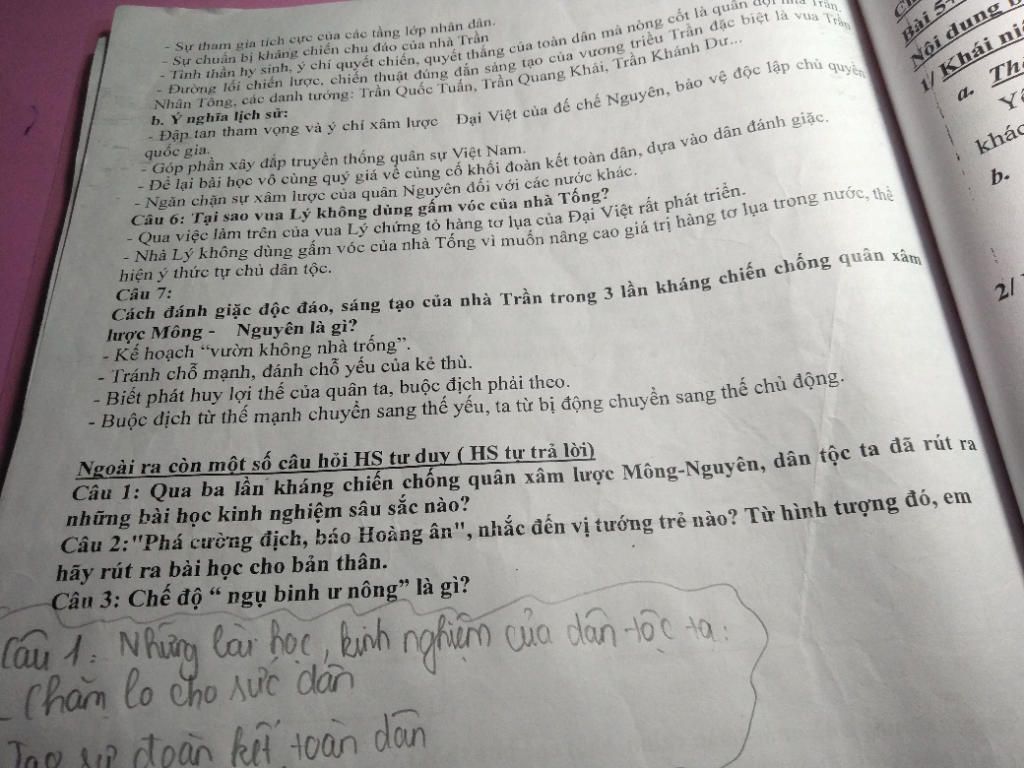 - Sự tham gia tích cực của các tầng lớp nhân dân.
- Sự chuẩn bị kháng chiến chu đáo của nhà Trần
- Tinh thần hy sinh, ý chí quyết chiến, quyết thắng của toàn dân mà nòng cốt là quân đội nhà Trần.
- Đường lối chiến lược, chiến thuật đúng đắn sáng tạo của vương triều Trần đặc biệt là vua Trần
Nhân Tông, các danh tướng: Trần Quốc Tuấn, Trần Quang Khải, Trần Khánh Dư...
b. Ý nghĩa lịch sử:
- Đập tan tham vọng và ý chí xâm lược Đại Việt của đế chế Nguyên, bảo vệ độc lập chủ quyền
quốc gia.
- Góp phần xây đắp truyền thống quân sự Việt Nam.
- Để lại bài học vô cùng quý giá về củng cố khối đoàn kết toàn dân, dựa vào dân đánh giặc.
- Ngăn chặn sự xâm lược của quân Nguyên đối với các nước khác.
Câu 6: Tại sao vua Lý không dùng gấm vóc của nhà Tống?
- Qua việc làm trên của vua Lý chứng tỏ hàng tơ lụa của Đại Việt rất phát triển.
- Nhà Lý không dùng gấm vóc của nhà Tống vì muốn nâng cao giá trị hàng tơ lụa trong nước, thể
hiện ý thức tự chủ dân tộc.
Câu 7:
Cách đánh giặc độc đáo, sáng tạo của nhà Trần trong 3 lần kháng chiến chống quân xâm
lược Mông - Nguyên là gì?
- Kế hoạch “vườn không nhà trống”.
- Tránh chỗ mạnh, đánh chỗ yếu của kẻ thù.
- Biết phát huy lợi thế của quân ta, buộc địch phải theo.
- Buộc địch từ thế mạnh chuyển sang thế yếu, ta từ bị động chuyển sang thế chủ động.
Ngoài ra còn một số câu hỏi HS tư duy ( HS tự trả lời)
Câu 1: Qua ba lần kháng chiến chống quân xâm lược Mông-Nguyên, dân tộc ta đã rút ra
những bài học kinh nghiệm sâu sắc nào?
Câu 2:"Phá cường địch, báo Hoàng ân", nhắc đến vị tướng trẻ nào? Từ hình tượng đó, em
hãy rút ra bài học cho bản thân.
Câu 3: Chế độ “ ngụ binh ư nông” là gì?
Câu 1: Những bài học, kinh nghiệm của dân tộc ta:
- Chăm lo cho sức dân
Tạo sự đoàn kết toàn dân
Bài 5
Nội dung
1/ Khái ni
a. Th
khác
b.
2/